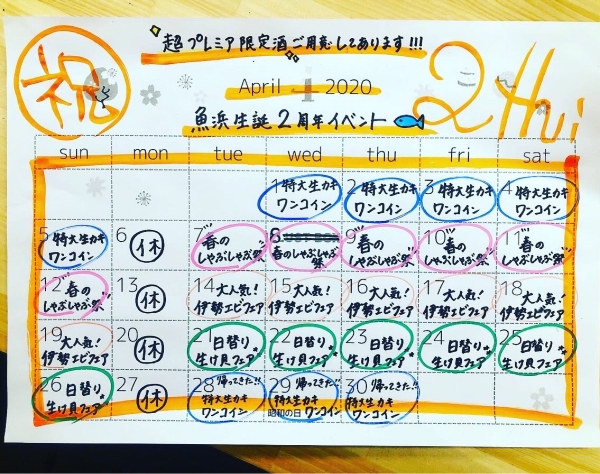 超プレミア限定酒ご用意してあります!!!
祝
April 4 2020
2 Hui
魚浜生誕2周年イベント
sun mon tue wed thu fri sat
1 2 3 4
特大生カキ 特大生カキ 特大生カキ 特大生カキ
ワンコイン ワンコイン ワンコイン ワンコイン
5 6 7 8 9 10 11
特大生カキ 休 春の 春の 春の 春の
ワンコイン しゃぶしゃぶ祭 春のしゃぶしゃぶ祭 しゃぶしゃぶ祭 しゃぶしゃぶ祭 しゃぶしゃぶ祭
12 13 14 15 16 17 18
春の 休 大人気! 大人気! 大人気! 大人気! 大人気!
しゃぶしゃぶ祭 伊勢エビフェア 伊勢エビフェア 伊勢エビフェア 伊勢エビフェア 伊勢エビフェア
19 20 21 22 23 24 25
大人気! 休 日替り 日替り 日替り 日替り 日替り
伊勢エビフェア 生け貝フェア 生け貝フェア 生け貝フェア 生け貝フェア 生け貝フェア
26 27 28 29 30
日替り 休 帰ってきた!! 帰ってきた!! 帰ってきた!!
生け貝フェア 特大生カキ 特大生カキ 特大生カキ
ワンコイン ワンコイン ワンコイン
昭和の日